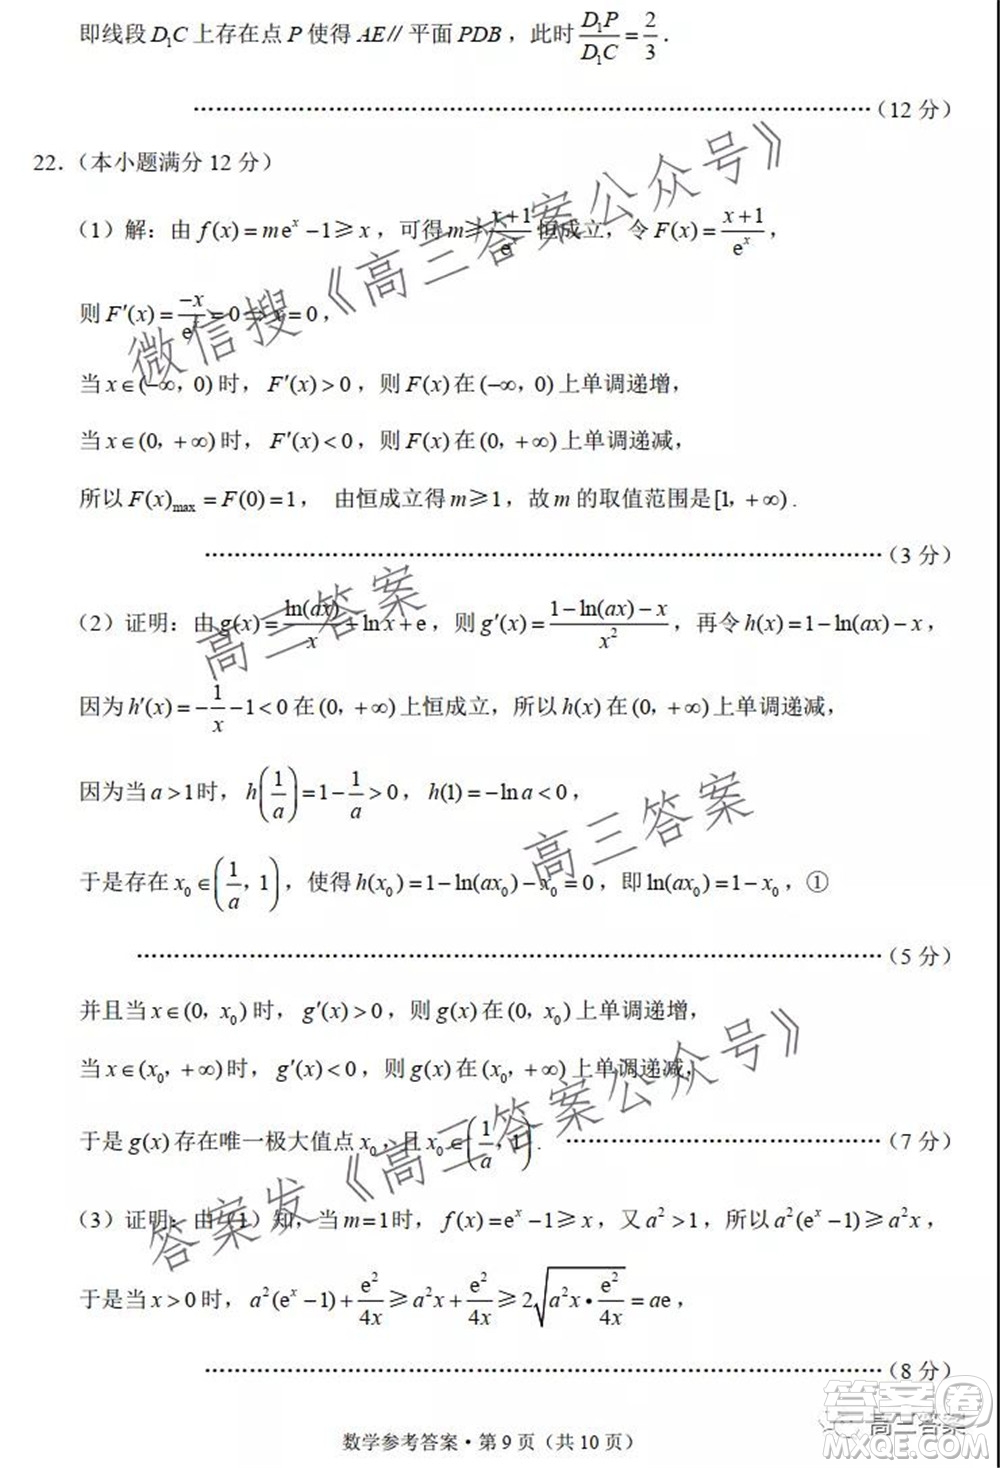 即线段 D₁C 上存在点 P 使得 AE∥ 平面 PDB，此时 D₁P/D₁C = 2/3．
……………………………………………………（12 分）
22．（本小题满分 12 分）
（1）解：由 f(x) = meˣ − 1 ≥ x，可得 m ≥ (x+1)/eˣ 恒成立，令 F(x) = (x+1)/eˣ，
则 F′(x) = −x/eˣ = 0 ⇒ x = 0，
当 x∈(−∞，0) 时，F′(x) > 0，则 F(x) 在 (−∞，0) 上单调递增，
当 x∈(0，+∞) 时，F′(x) < 0，则 F(x) 在 (0，+∞) 上单调递减，
所以 F(x)max = F(0) = 1， 由恒成立得 m ≥ 1，故 m 的取值范围是 [1，+∞)．
……………………………………………………（3 分）
（2）证明：由 g(x) = ln(ax)/x − ln x + e，则 g′(x) = (1−ln(ax)−x)/x²，再令 h(x) = 1 − ln(ax) − x，
因为 h′(x) = −1/x − 1 < 0 在 (0，+∞) 上恒成立，所以 h(x) 在 (0，+∞) 上单调递减，
因为当 a > 1 时，h(1/a) = 1 − 1/a > 0，h(1) = −ln a < 0，
于是存在 x₀∈(1/a，1)，使得 h(x₀) = 1 − ln(ax₀) − x₀ = 0，即 ln(ax₀) = 1 − x₀，①
……………………………………………………（5 分）
并且当 x∈(0，x₀) 时，g′(x) > 0，则 g(x) 在 (0，x₀) 上单调递增，
当 x∈(x₀，+∞) 时，g′(x) < 0，则 g(x) 在 (x₀，+∞) 上单调递减，
于是 g(x) 存在唯一极大值点 x₀，且 x₀∈(1/a，1)． ……………………（7 分）
（3）证明：由（1）知，当 m = 1 时，f(x) = eˣ − 1 ≥ x，又 a² > 1，所以 a²(eˣ − 1) ≥ a²x，
于是当 x > 0 时，a²(eˣ − 1) + e²/4x ≥ a²x + e²/4x ≥ 2√(a²x • e²/4x) = ae，
……………………………………………………（8 分）
数学参考答案・第 9 页（共 10 页）
微信搜《高三答案公众号》
高三答案
高三答案
答案发《高三答案公众号》
答案卷
高三答案
MXQE.COM